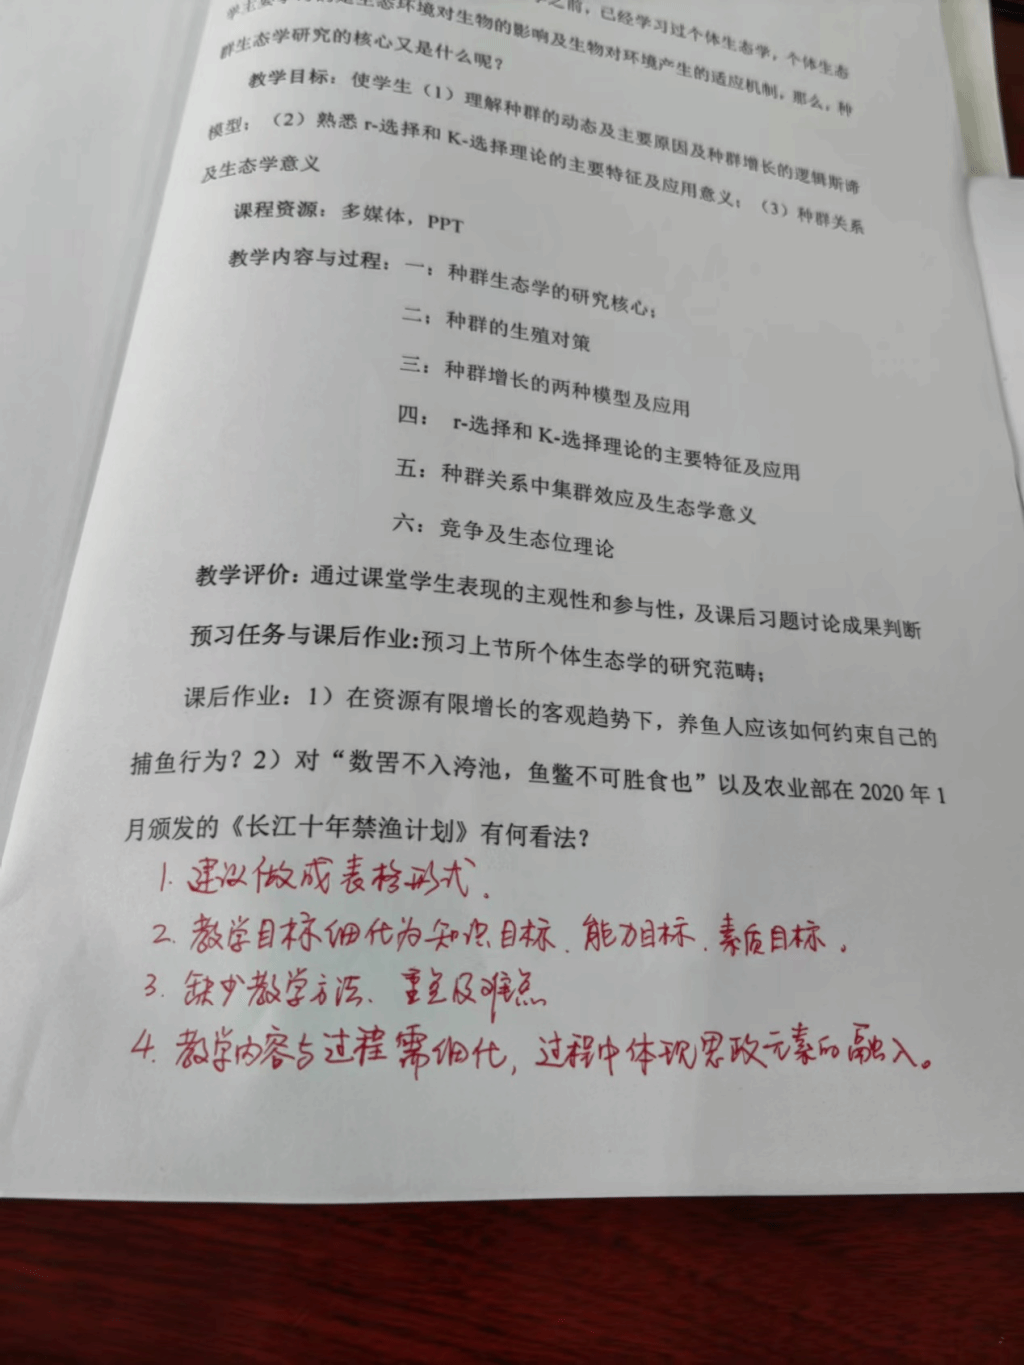 之前，已经学习过个体生态学，个体生态
学主要学习的是生态环境对生物的影响及生物对环境产生的适应机制，那么，种
群生态学研究的核心又是什么呢？
教学目标：使学生（1）理解种群的动态及主要原因及种群增长的逻辑斯谛
模型；（2）熟悉 r-选择和 K-选择理论的主要特征及应用意义；（3）种群关系
及生态学意义
课程资源：多媒体，PPT
教学内容与过程：一；种群生态学的研究核心；
二；种群的生殖对策
三：种群增长的两种模型及应用
四： r-选择和 K-选择理论的主要特征及应用
五：种群关系中集群效应及生态学意义
六：竞争及生态位理论
教学评价：通过课堂学生表现的主观性和参与性，及课后习题讨论成果判断
预习任务与课后作业:预习上节所个体生态学的研究范畴；
课后作业：1）在资源有限增长的客观趋势下，养鱼人应该如何约束自己的
捕鱼行为？2）对“数罟不入洿池，鱼鳖不可胜食也”以及农业部在 2020 年 1
月颁发的《长江十年禁渔计划》有何看法？
1. 建议做成表格形式.
2. 教学目标细化为知识目标、能力目标、素质目标.
3. 缺少教学方法、重点及难点
4. 教学内容与过程需细化，过程中体现思政元素的融入。